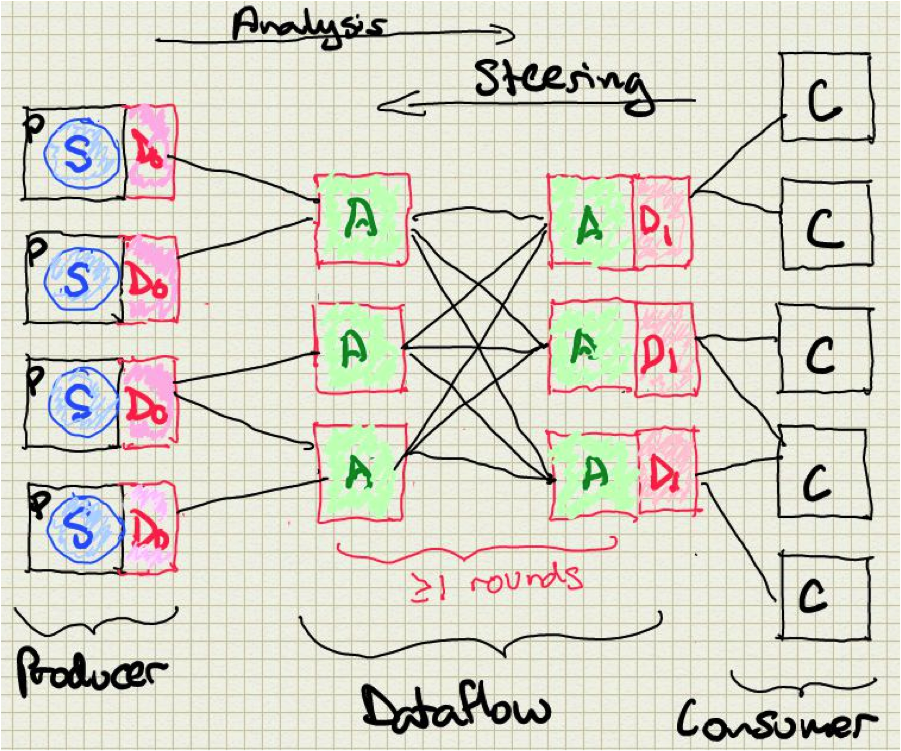 Analysis
Steering
P S D0
P S D0
P S D0
P S D0
A
A
A
A D1
A D1
A D1
C
C
C
C
C
≥1 rounds
Producer
Dataflow
Consumer